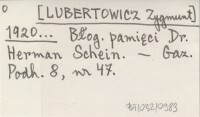 [LUBERTOWICZ Zygmunt]
1920... Błog. pamięci Dr.
Herman Schein. — Gaz.
Podh. 8, nr 47.